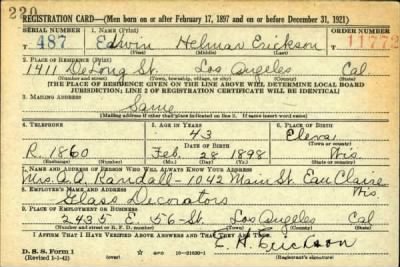 220
REGISTRATION CARD—(Men born on or after February 17, 1897 and on or before December 31, 1921)
SERIAL NUMBER 1. NAME (Print) ORDER NUMBER
487 Edwin Helmar Erickson 11772
(First) (Middle) (Last)
2. PLACE OF RESIDENCE (Print)
1411 DeLong St. Los Angeles Cal.
(Number and street) (Town, township, village, or city) (County) (State)
[THE PLACE OF RESIDENCE GIVEN ON THE LINE ABOVE WILL DETERMINE LOCAL BOARD
JURISDICTION; LINE 2 OF REGISTRATION CERTIFICATE WILL BE IDENTICAL]
3. MAILING ADDRESS
Same
[Mailing address if other than place indicated on line 2. If same insert word same]
4. TELEPHONE 5. AGE IN YEARS 6. PLACE OF BIRTH
43 Eleva
DATE OF BIRTH (Town or county)
R. 1860 Feb 28 1898 Wis
(Exchange) (Number) (Mo.) (Day) (Yr.) (State or country)
7. NAME AND ADDRESS OF PERSON WHO WILL ALWAYS KNOW YOUR ADDRESS
Mrs. Randall-1042 Main St. Eau Claire Wis
8. EMPLOYER'S NAME AND ADDRESS
Glass Decorators
9. PLACE OF EMPLOYMENT OR BUSINESS
2435 E. 56-St. Los Angeles Cal
(Number and street or R. F. D. number) (Town) (County) (State)
I AFFIRM THAT I HAVE VERIFIED ABOVE ANSWERS AND THAT THEY ARE TRUE.
D. S. S. Form 1
(Revised 1-1-42) (over) GPO 16—21630-1
E. H. Erickson